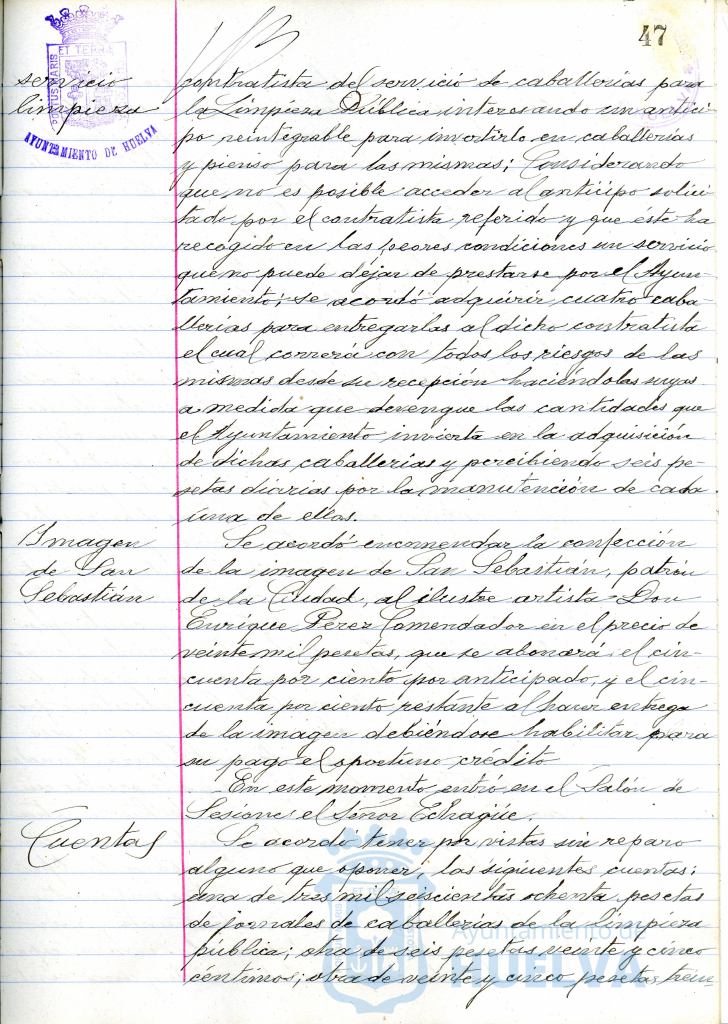 47
servicio
limpieza
PORTUS MARIS ET TERRAE
AYUNTAMIENTO DE HUELVA
contratista del servicio de caballerías para
la Limpieza Pública interesando un antici-
po reintegrable para invertirlo en caballerías
y pienso para las mismas; Considerando
que no es posible acceder al anticipo solici-
tado por el contratista referido y que éste ha
recogido en las peores condiciones un servicio
que no puede dejar de prestarse por el Ayun-
tamiento; se acordó adquirir cuatro caba-
llerías para entregarlas al dicho contratista
el cual correrá con todos los riesgos de las
mismas desde su recepción haciéndolas suyas
a medida que devengue las cantidades que
el Ayuntamiento invierta en la adquisición
de dichas caballerías y percibiendo seis pe-
setas diarias por la manutención de cada
una de ellas.
Imagen
de San
Sebastián
Se acordó encomendar la confección
de la imagen de San Sebastián, patrón
de la Ciudad, al ilustre artista Don
Enrique Perez Comendador en el precio de
veinte mil pesetas, que se abonará, el cin-
cuenta por ciento por anticipado, y el cin-
cuenta por ciento restante al hacer entrega
de la imagen debiéndose habilitar para
su pago el oportuno crédito
En este momento entró en el Salón de
Sesiones el Señor Echagüe.
Cuentas
Se acordó tener por vistas sin reparo
alguno que oponer, las siguientes cuentas:
una de tres mil seiscientas ochenta pesetas
de jornales de caballerías de la limpieza
pública; otra de seis pesetas veinte y cinco
centimos; otra de veinte y cinco pesetas trein-
Ayuntamiento de
HUELVA